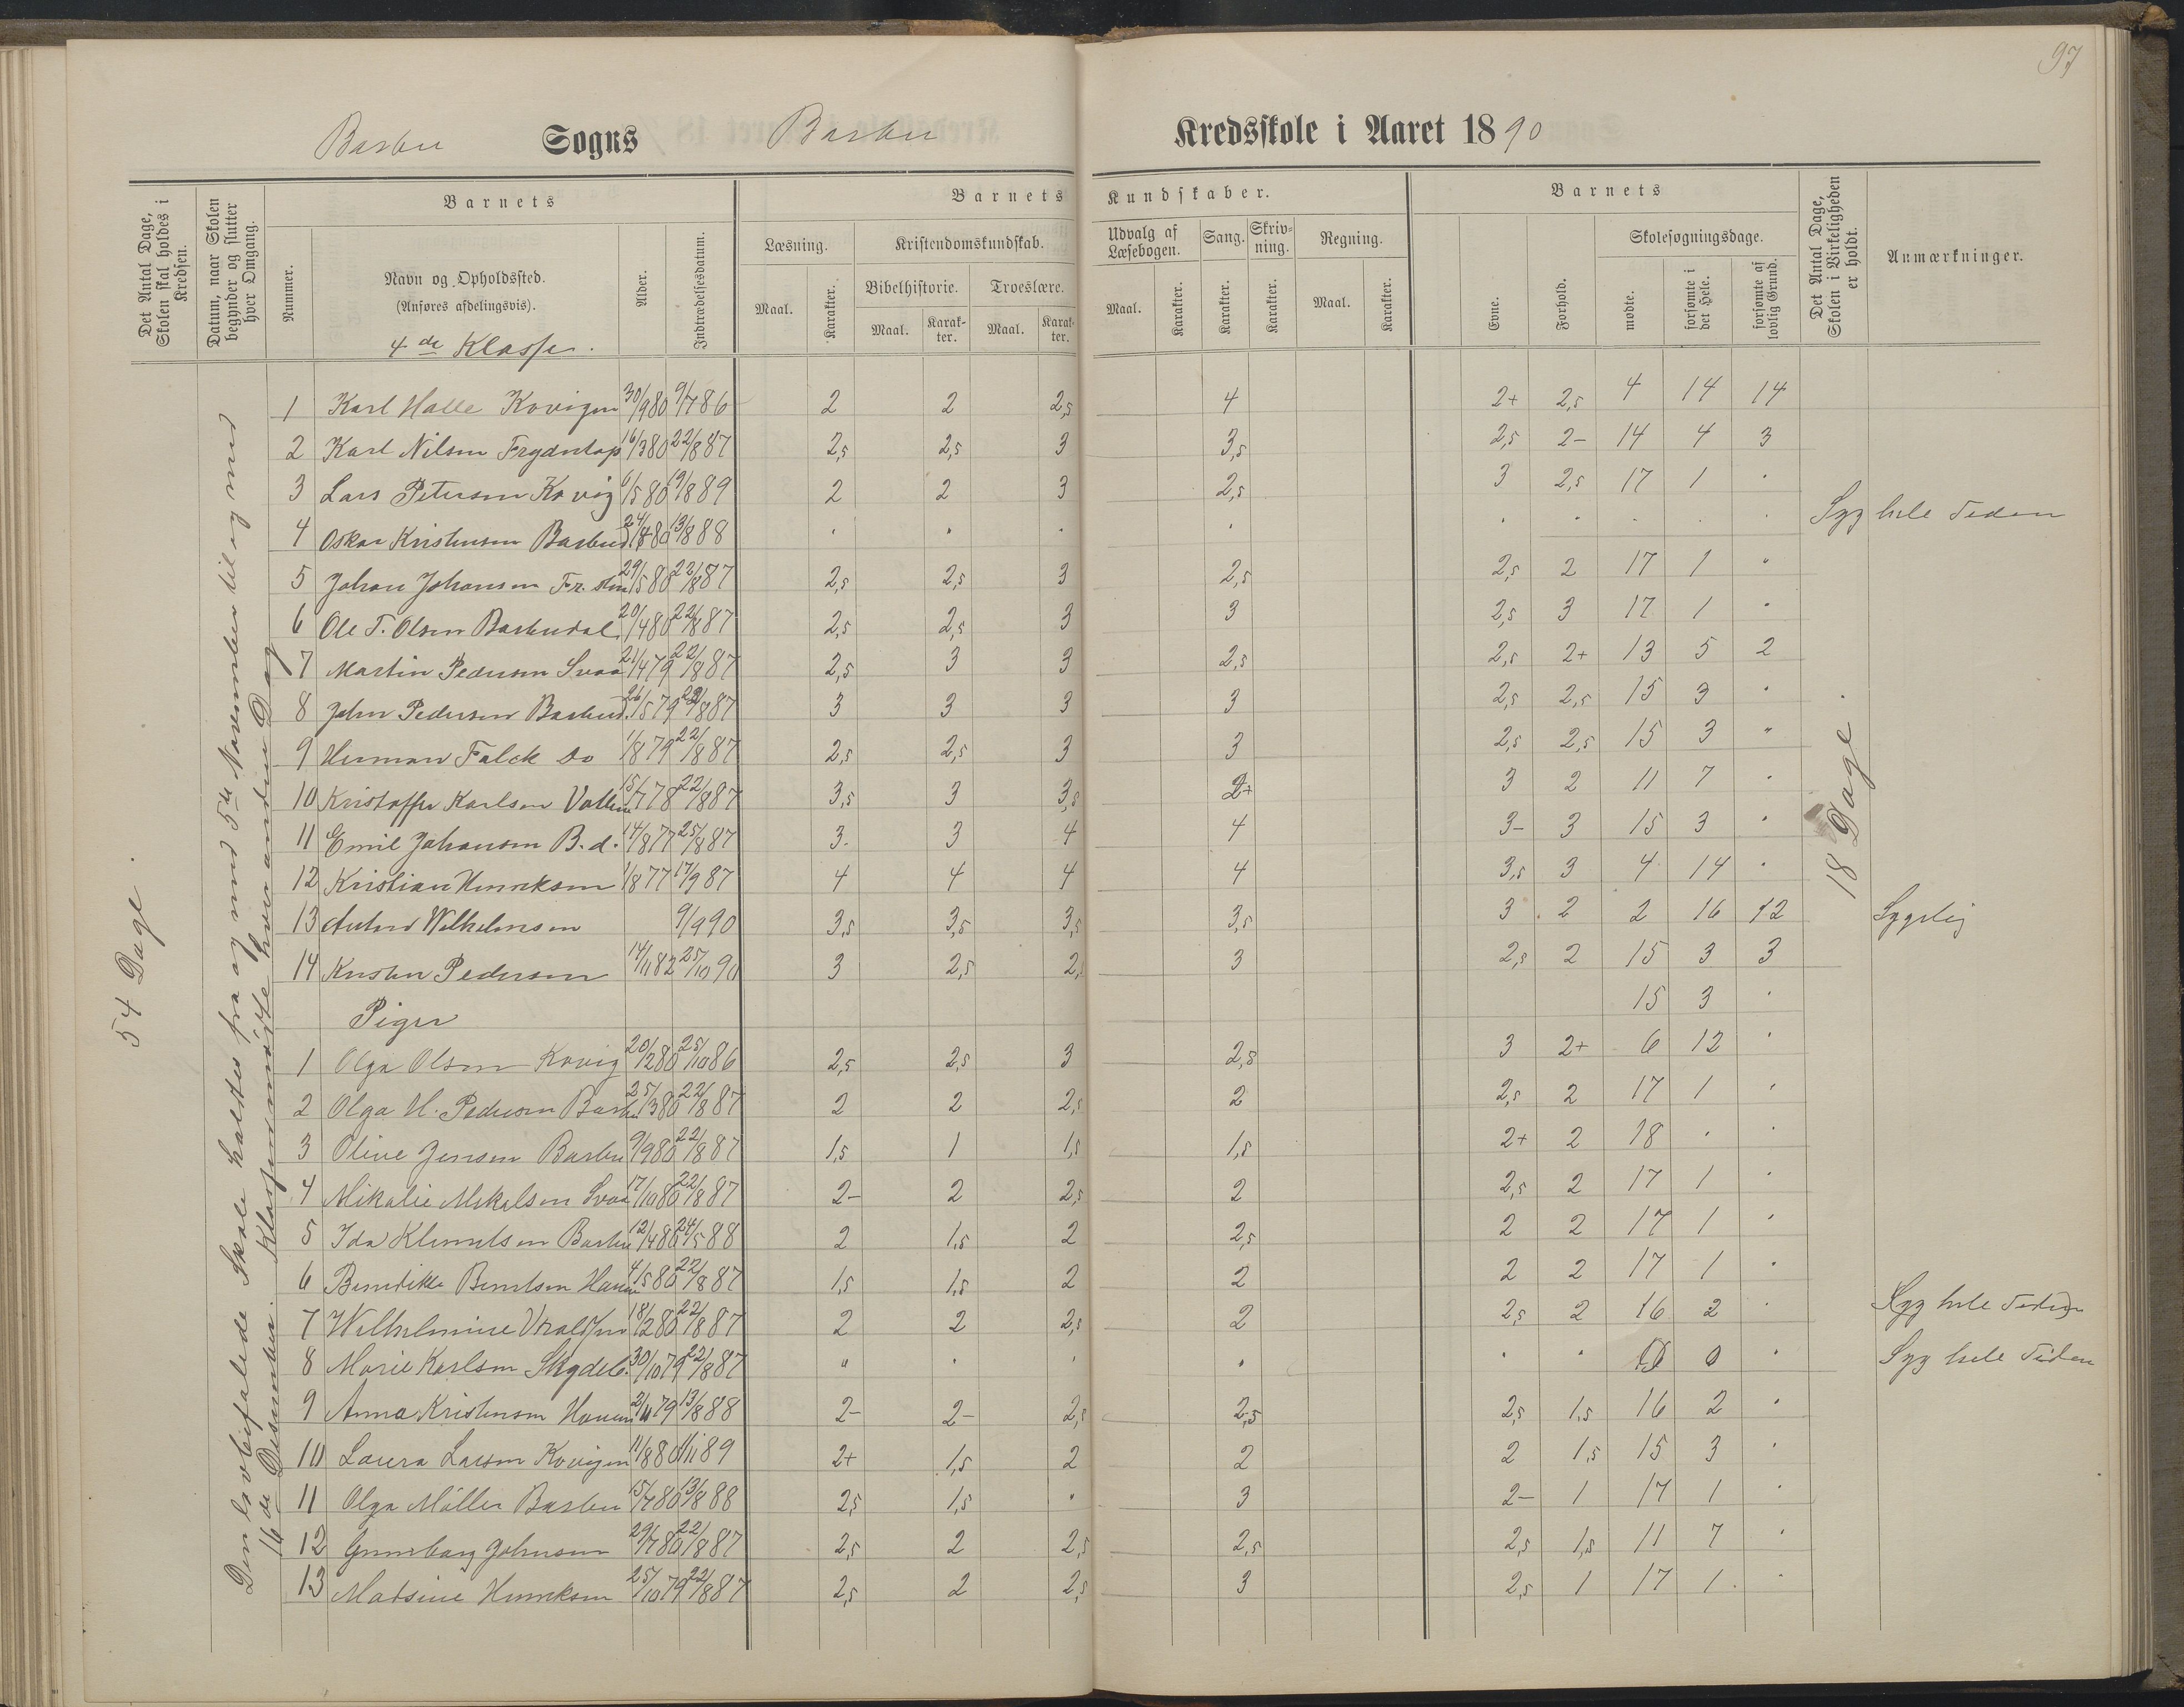 97
Barbu Sogns Barbu Kredsskole i Aaret 1890
Det Antal Dage, Skolen skal holdes i Kredsen.
Datum, naar Skolen begynder og slutter hver Omgang.
Barnets
Nummer.
Navn og Opholdssted.
(Anføres afdelingsvis).
4de Klasse.
Alder.
Indtrædelsesdatum.
Barnets Kundskaber.
Læsning. Kristendomskundskab. Udvalg af Læsebogen. Sang. Skrivning. Regning.
Bibelhistorie. Troeslære.
Maal. Karakter. Maal. Karakter. Maal. Karakter. Maal. Karakter. Karakter. Karakter. Maal. Karakter.
Barnets
Evne. Forhold. Skolesøgningsdage.
mødte. forsømte i det Hele. forsømte af lovlig Grund.
Det Antal Dage, Skolen i Virkeligheden er holdt.
Anmærkninger.
54 Dage.
Den lovbefalede Skole holdtes fra og med 5te November til og med
16de Desember. Klassen mødte hver anden Dag
18 Dage.
1 Karl Halle Kovigen 30/9 80 9/7 86 2 2 2,5 4 2+ 2,5 4 14 14
2 Karl Nilsen 16/3 80 22/8 87 2,5 2,5 3 3,5 2,5 2- 14 4 3
3 Lars Petersen Kovig 6/5 80 19/8 89 2 2 3 2,5 3 2,5 17 1 .
4 Oskar Kristensen Barbud. 13/8 88 . . . . . . . . . Syg hele Tiden
5 Johan Johansen Fr. sten 29/5 80 22/8 87 2,5 2,5 3 2,5 2,5 2 17 1 "
6 Ole T. Olsen Barbudal 20/4 80 22/8 87 2,5 2,5 3 3 2,5 3 17 1 .
7 Martin Pedersen Svaa 21/4 79 22/8 87 2,5 3 3 2,5 2,5 2+ 13 5 2
8 John Pedersen Barbud. 26/5 79 22/8 87 3 3 3 3 2,5 2,5 15 3 .
9 Herman Falck Do 1/8 79 22/8 87 2,5 2,5 3 3 2,5 2,5 15 3 "
10 Kristoffer Karlsen 15/7 78 22/8 87 3,5 3 3,5 2+ 3 2 11 7 .
11 Emil Johansen B.d. 14/8 77 25/8 87 3. 3 4 4 3- 3 15 3 .
12 Kristian Henriksen 1/8 77 17/9 87 4 4 4 4 3,5 3 4 14 .
13 Anton Wilhelmsen 9/9 90 3,5 3,5 3,5 3,5 3 2 2 16 12 Sygelig
14 Kristen Pedersen 14/11 82 25/10 90 3 2,5 2,5 3 2,5 2 15 3 3
Piger 15 3 .
1 Olga Olsen Kovig 20/2 80 25/10 86 2,5 2,5 3 2,5 3 2+ 6 12 .
2 Olga H. Pedersen Barbu 25/3 80 22/8 87 2 2 2,5 2 2,5 2 17 1 .
3 Oline Jensen Barbu 9/9 80 22/8 87 1,5 1 1,5 1,5 2+ 2 18 . .
4 Mikalie Mikalsen Svaa 17/10 80 22/8 87 2- 2 2,5 2 2,5 2 17 1 .
5 Ida Klemetsen Barbu 12/4 80 24/5 88 2 1,5 2 2,5 2 2 17 1 .
6 Benedikte Berntsen Haven 4/5 80 22/8 87 1,5 1,5 2 2 2 2 17 1 .
7 Wilhelmine 18/2 80 22/8 87 2 2 2,5 2 2,5 2 16 2 . Syg hele Tiden
8 Marie Karlsen Skydeb. 30/10 79 22/8 87 " . . . . . 0 . Syg hele Tiden
9 Anna Kristensen Haven 2/11 79 13/8 88 2- 2- 2,5 2,5 2,5 1,5 16 2 .
10 Laura Larsen Kovigen 11/8 80 1/11 89 2+ 1,5 2 2 2 1,5 15 3 .
11 Olga Møller Barbu 15/7 80 13/8 88 2,5 1,5 . 3 2- 1 17 1 .
12 Gunborg Johnsen 29/7 80 22/8 87 2,5 2 2,5 2,5 2,5 1,5 11 7 .
13 Matsine Henriksen 25/10 79 22/8 87 2,5 2 2,5 3 2,5 1 17 1 .